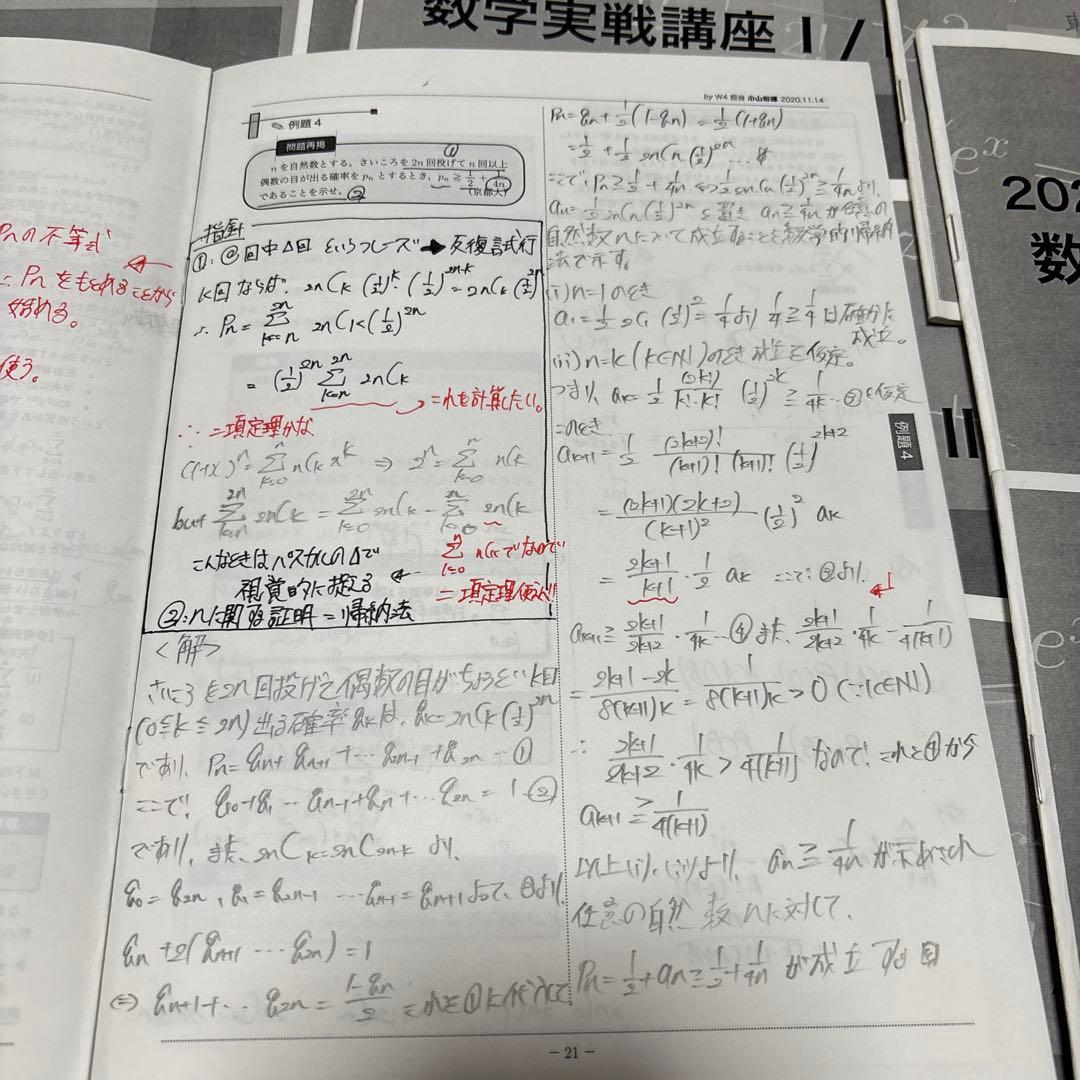 数学実戦講座 I /
by W4 担当 小山裕輝 2020.11.14
例題 4
問題再掲
①
n を自然数とする。さいころを 2n 回投げて n 回以上
偶数の目が出る確率を pₙ とするとき, pₙ ≧ 1/2 + 1/4n
であることを示せ。② (京都大)
指針
①: ◎回中△回 というフレーズ → 反復試行
k回ならば、2nCk (1/2)^k・(1/2)^(2n-k) = 2nCk (1/2)^2n
∴ Pn = Σ[k=n→2n] 2nCk (1/2)^2n
= (1/2)^2n Σ[k=n→2n] 2nCk
これを計算したい。
∴ 二項定理かな
(1+x)^n = Σ[k=0→n] nCk x^k ⇒ 2^n = Σ[k=0→n] nCk
but Σ[k=n→2n] 2nCk = Σ[k=0→2n] 2nCk - Σ[k=0] 2nCk
Σ[k=0→n] nCk でないので
二項定理使えん!!
こんなときはパスカルの△で
視覚的に捉える
②: nに関する証明 = 帰納法
<解>
さいころを2n回投げて偶数の目がちょうど k回
(0≦k≦2n) 出る確率 qk は、qk = 2nCk (1/2)^2n
であり、Pn = qn + qn+1 + … q2n-1 + q2n … ①
ここで、q0 + q1 … qn-1 + qn + … q2n = 1 … ②
であり、また、2nCk = 2nC2n-k より、
q0 = q2n, q1 = q2n-1 … qn-1 = qn+1 よって、②より、
qn + 2(qn+1 … q2n) = 1
⇔ qn+1 + … q2n = (1-qn)/2 これを①に代入して
Pn = qn + 1/2(1-qn) = 1/2(1+qn)
= 1/2 + 1/2 2nCn (1/2)^2n …
ここで、Pn ≧ 1/2 + 1/4n ⇔ 1/2 2nCn (1/2)^2n ≧ 1/4n より、
an = 1/2 2nCn (1/2)^2n と置き an ≧ 1/4n が任意の
自然数nについて成立することを数学的帰納
法で示す。
(i) n=1のとき
a1 = 1/2 2C1 (1/2)^2 = 1/4 より 1/4 ≧ 1/4 は確かに
成立。
(ii) n=k (k∈N) のとき 成立を仮定。
つまり、ak = 1/2 (2k)!/(k!・k!) (1/2)^2k ≧ 1/4k … ③ を仮定
このとき、
ak+1 = 1/2 (2k+2)!/((k+1)! (k+1)!) (1/2)^(2k+2)
= (2k+1)(2k+2)/(k+1)^2 (1/2)^2 ak
= (2k+1)/(k+1)・1/2 ak ここで ③より、
ak+1 ≧ (2k+1)/(2k+2)・1/4k … ④ また、(2k+1)/(2k+2)・1/4k - 1/4(k+1)
= (2k+1-2k)/8(k+1)k = 1/8(k+1)k > 0 (∵ k∈N)
∴ (2k+1)/(2k+2)・1/4k > 1/4(k+1) なので、これと④から
ak+1 ≧ 1/4(k+1)
以上(i), (ii)より、an ≧ 1/4n が示され
任意の自然数nに対して、
Pn = 1/2 + an ≧ 1/2 + 1/4n が成立する
例題 4
Pnの不等式
∴ Pn をもとめることから
始める。
使う。
– 21 –
e^x
202
数
II